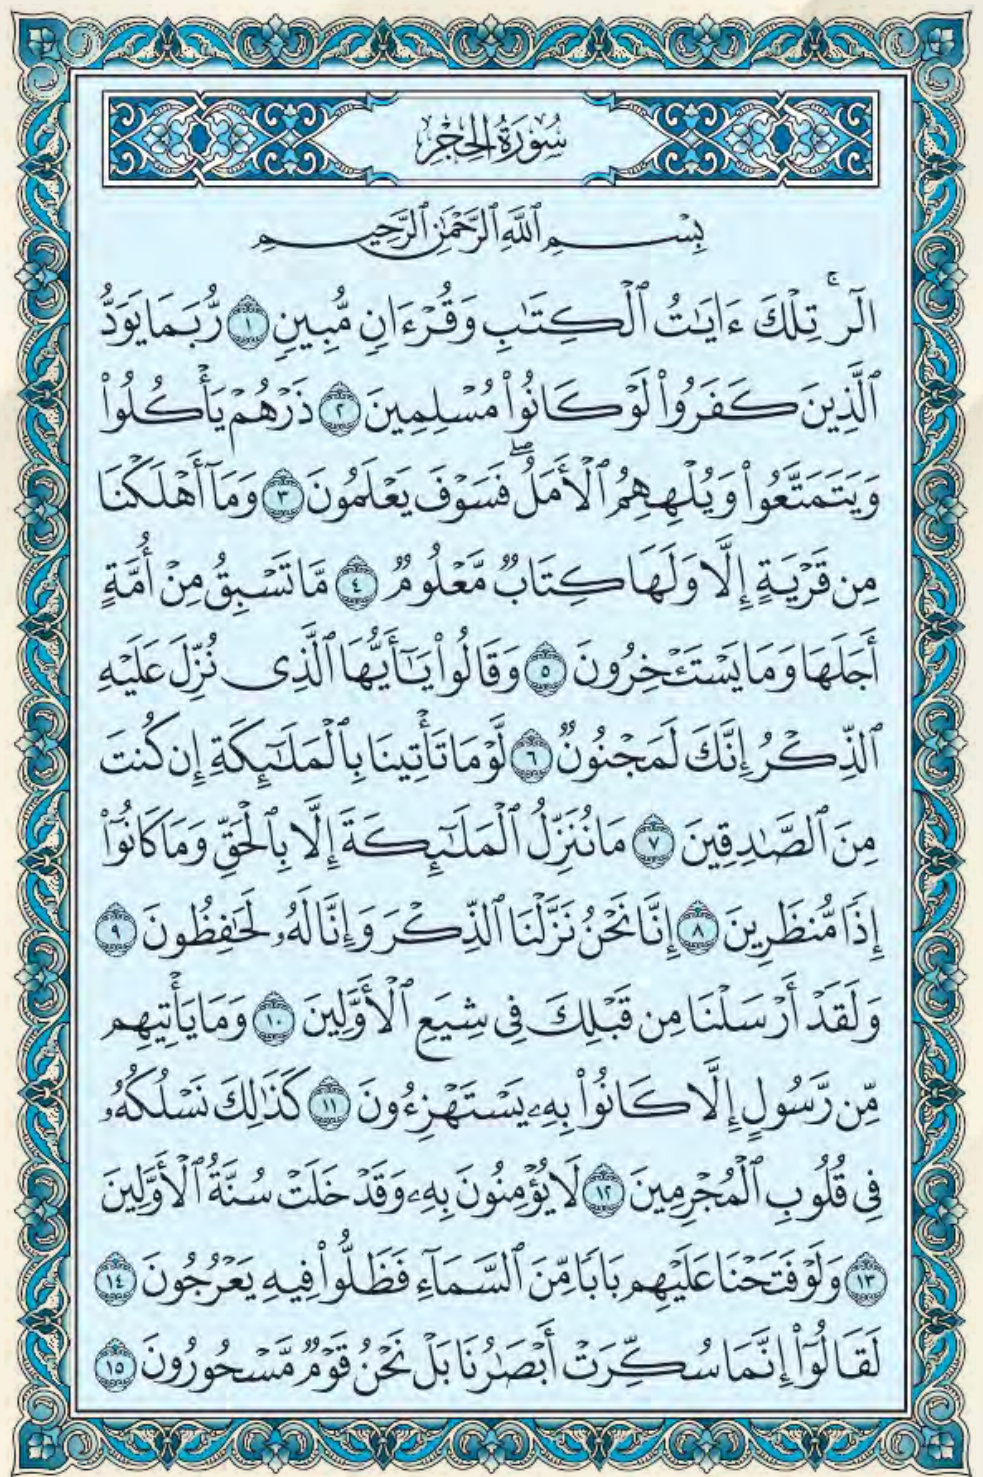 سُورَةُ الحِجْرِ
بِسْمِ ٱللَّهِ ٱلرَّحْمَٰنِ ٱلرَّحِيمِ
الٓرۚ تِلْكَ ءَايَٰتُ ٱلْكِتَٰبِ وَقُرْءَانٍ مُّبِينٍ ١ رُّبَمَا يَوَدُّ
ٱلَّذِينَ كَفَرُوا۟ لَوْ كَانُوا۟ مُسْلِمِينَ ٢ ذَرْهُمْ يَأْكُلُوا۟
وَيَتَمَتَّعُوا۟ وَيُلْهِهِمُ ٱلْأَمَلُۖ فَسَوْفَ يَعْلَمُونَ ٣ وَمَآ أَهْلَكْنَا
مِن قَرْيَةٍ إِلَّا وَلَهَا كِتَابٌ مَّعْلُومٌ ٤ مَّا تَسْبِقُ مِنْ أُمَّةٍ
أَجَلَهَا وَمَا يَسْتَـْٔخِرُونَ ٥ وَقَالُوا۟ يَٰٓأَيُّهَا ٱلَّذِى نُزِّلَ عَلَيْهِ
ٱلذِّكْرُ إِنَّكَ لَمَجْنُونٌ ٦ لَّوْ مَا تَأْتِينَا بِٱلْمَلَٰٓئِكَةِ إِن كُنتَ
مِنَ ٱلصَّٰدِقِينَ ٧ مَا نُنَزِّلُ ٱلْمَلَٰٓئِكَةَ إِلَّا بِٱلْحَقِّ وَمَا كَانُوٓا۟
إِذًا مُّنظَرِينَ ٨ إِنَّا نَحْنُ نَزَّلْنَا ٱلذِّكْرَ وَإِنَّا لَهُۥ لَحَٰفِظُونَ ٩
وَلَقَدْ أَرْسَلْنَا مِن قَبْلِكَ فِى شِيَعِ ٱلْأَوَّلِينَ ١٠ وَمَا يَأْتِيهِم
مِّن رَّسُولٍ إِلَّا كَانُوا۟ بِهِۦ يَسْتَهْزِءُونَ ١١ كَذَٰلِكَ نَسْلُكُهُۥ
فِى قُلُوبِ ٱلْمُجْرِمِينَ ١٢ لَا يُؤْمِنُونَ بِهِۦ وَقَدْ خَلَتْ سُنَّةُ ٱلْأَوَّلِينَ
١٣ وَلَوْ فَتَحْنَا عَلَيْهِم بَابًا مِّنَ ٱلسَّمَآءِ فَظَلُّوا۟ فِيهِ يَعْرُجُونَ ١٤
لَقَالُوٓا۟ إِنَّمَا سُكِّرَتْ أَبْصَٰرُنَا بَلْ نَحْنُ قَوْمٌ مَّسْحُورُونَ ١٥